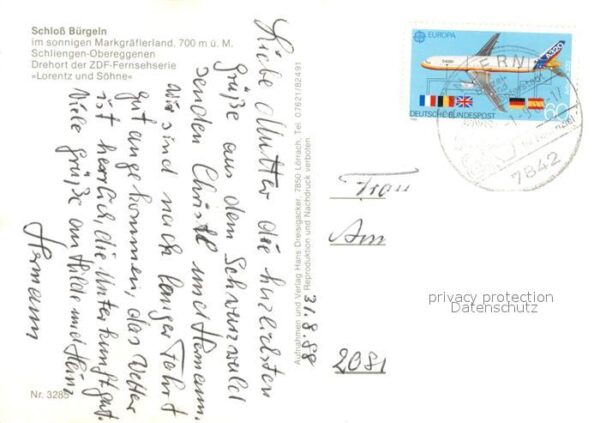 Schloß Bürgeln
im sonnigen Markgräflerland, 700 m ü. M.
Schliengen-Obereggenen
Drehort der ZDF-Fernsehserie
»Lorentz und Söhne«
Liebe Mutter die herzlichsten
grüße aus dem Schwarzwald
senden Christel und Hermann.
Wir sind nach langer Fahrt
gut angekommen, das Wetter
ist herrlich, die Unterkunft gut.
Viele grüße an Hilde und Heinz
Hermann
Nr. 3285
Aufnahmen und Verlag Hans Dreisigacker, 7850 Lörrach, Tel. 07621/82491
Reproduktion und Nachdruck verboten
31.8.88
EUROPA
A320
60
DEUTSCHE BUNDESPOST
7842
Frau
Am
2081
privacy protection
Datenschutz